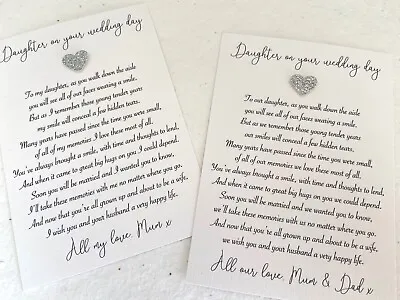 Daughter on your wedding day
To my daughter, as you walk down the aisle
you will see all of our faces wearing a smile.
But as I remember those young tender years
my smile will conceal a few hidden tears.
Many years have passed since the time you were small,
of all of my memories I love these most of all.
You've always brought a smile, with time and thoughts to lend,
And when it came to great big hugs on you I could depend.
Soon you will be married and I wanted you to know,
I'll take these memories with me no matter where you go.
And now that you're all grown up and about to be a wife,
I wish you and your husband a very happy life.
All my love, Mum x
Daughter on your wedding day
To our daughter, as you walk down the aisle
you will see all of our faces wearing a smile.
But as we remember those young tender years
our smiles will conceal a few hidden tears.
Many years have passed since the time you were small,
of all of our memories we love these most of all.
You've always brought a smile, with time and thoughts to lend,
And when it came to great big hugs on you we could depend.
Soon you will be married and we wanted you to know,
we'll take these memories with us no matter where you go.
And now that you're all grown up and about to be a wife,
we wish you and your husband a very happy life.
All our love, Mum & Dad x